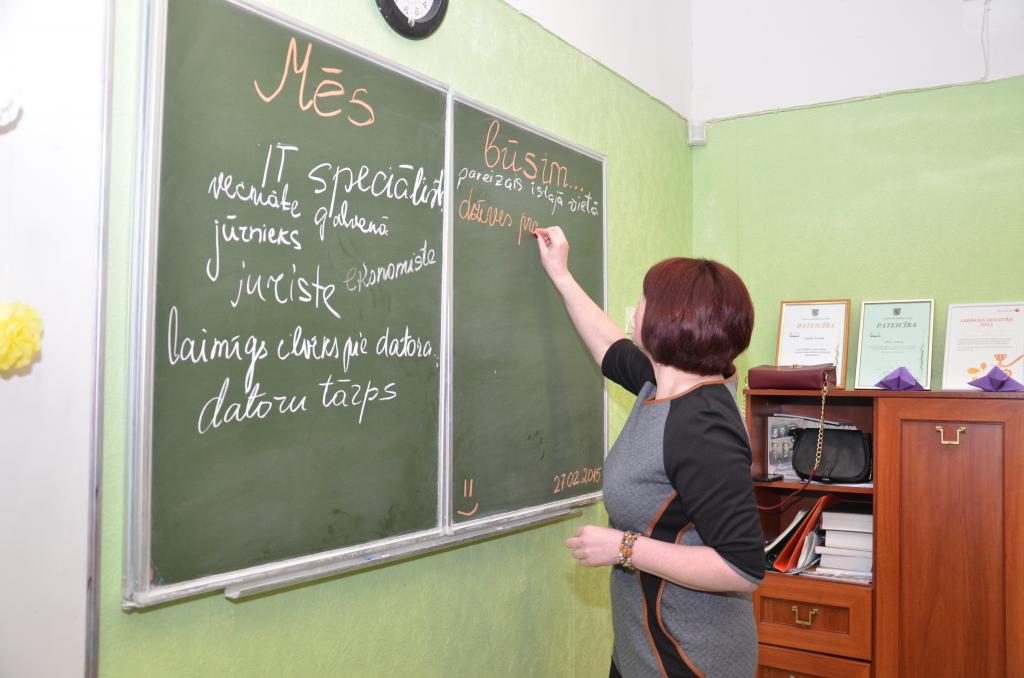 Mēs
IT speciālist
vecmāte galvenā
jūrnieks
juriste ekonomiste
laimīgs cilvēks pie datora
datoru tārps
būsim...
pareizais īstajā vietā
dzīves pro
27.02.2015
PATEICĪBA
PATEICĪBA